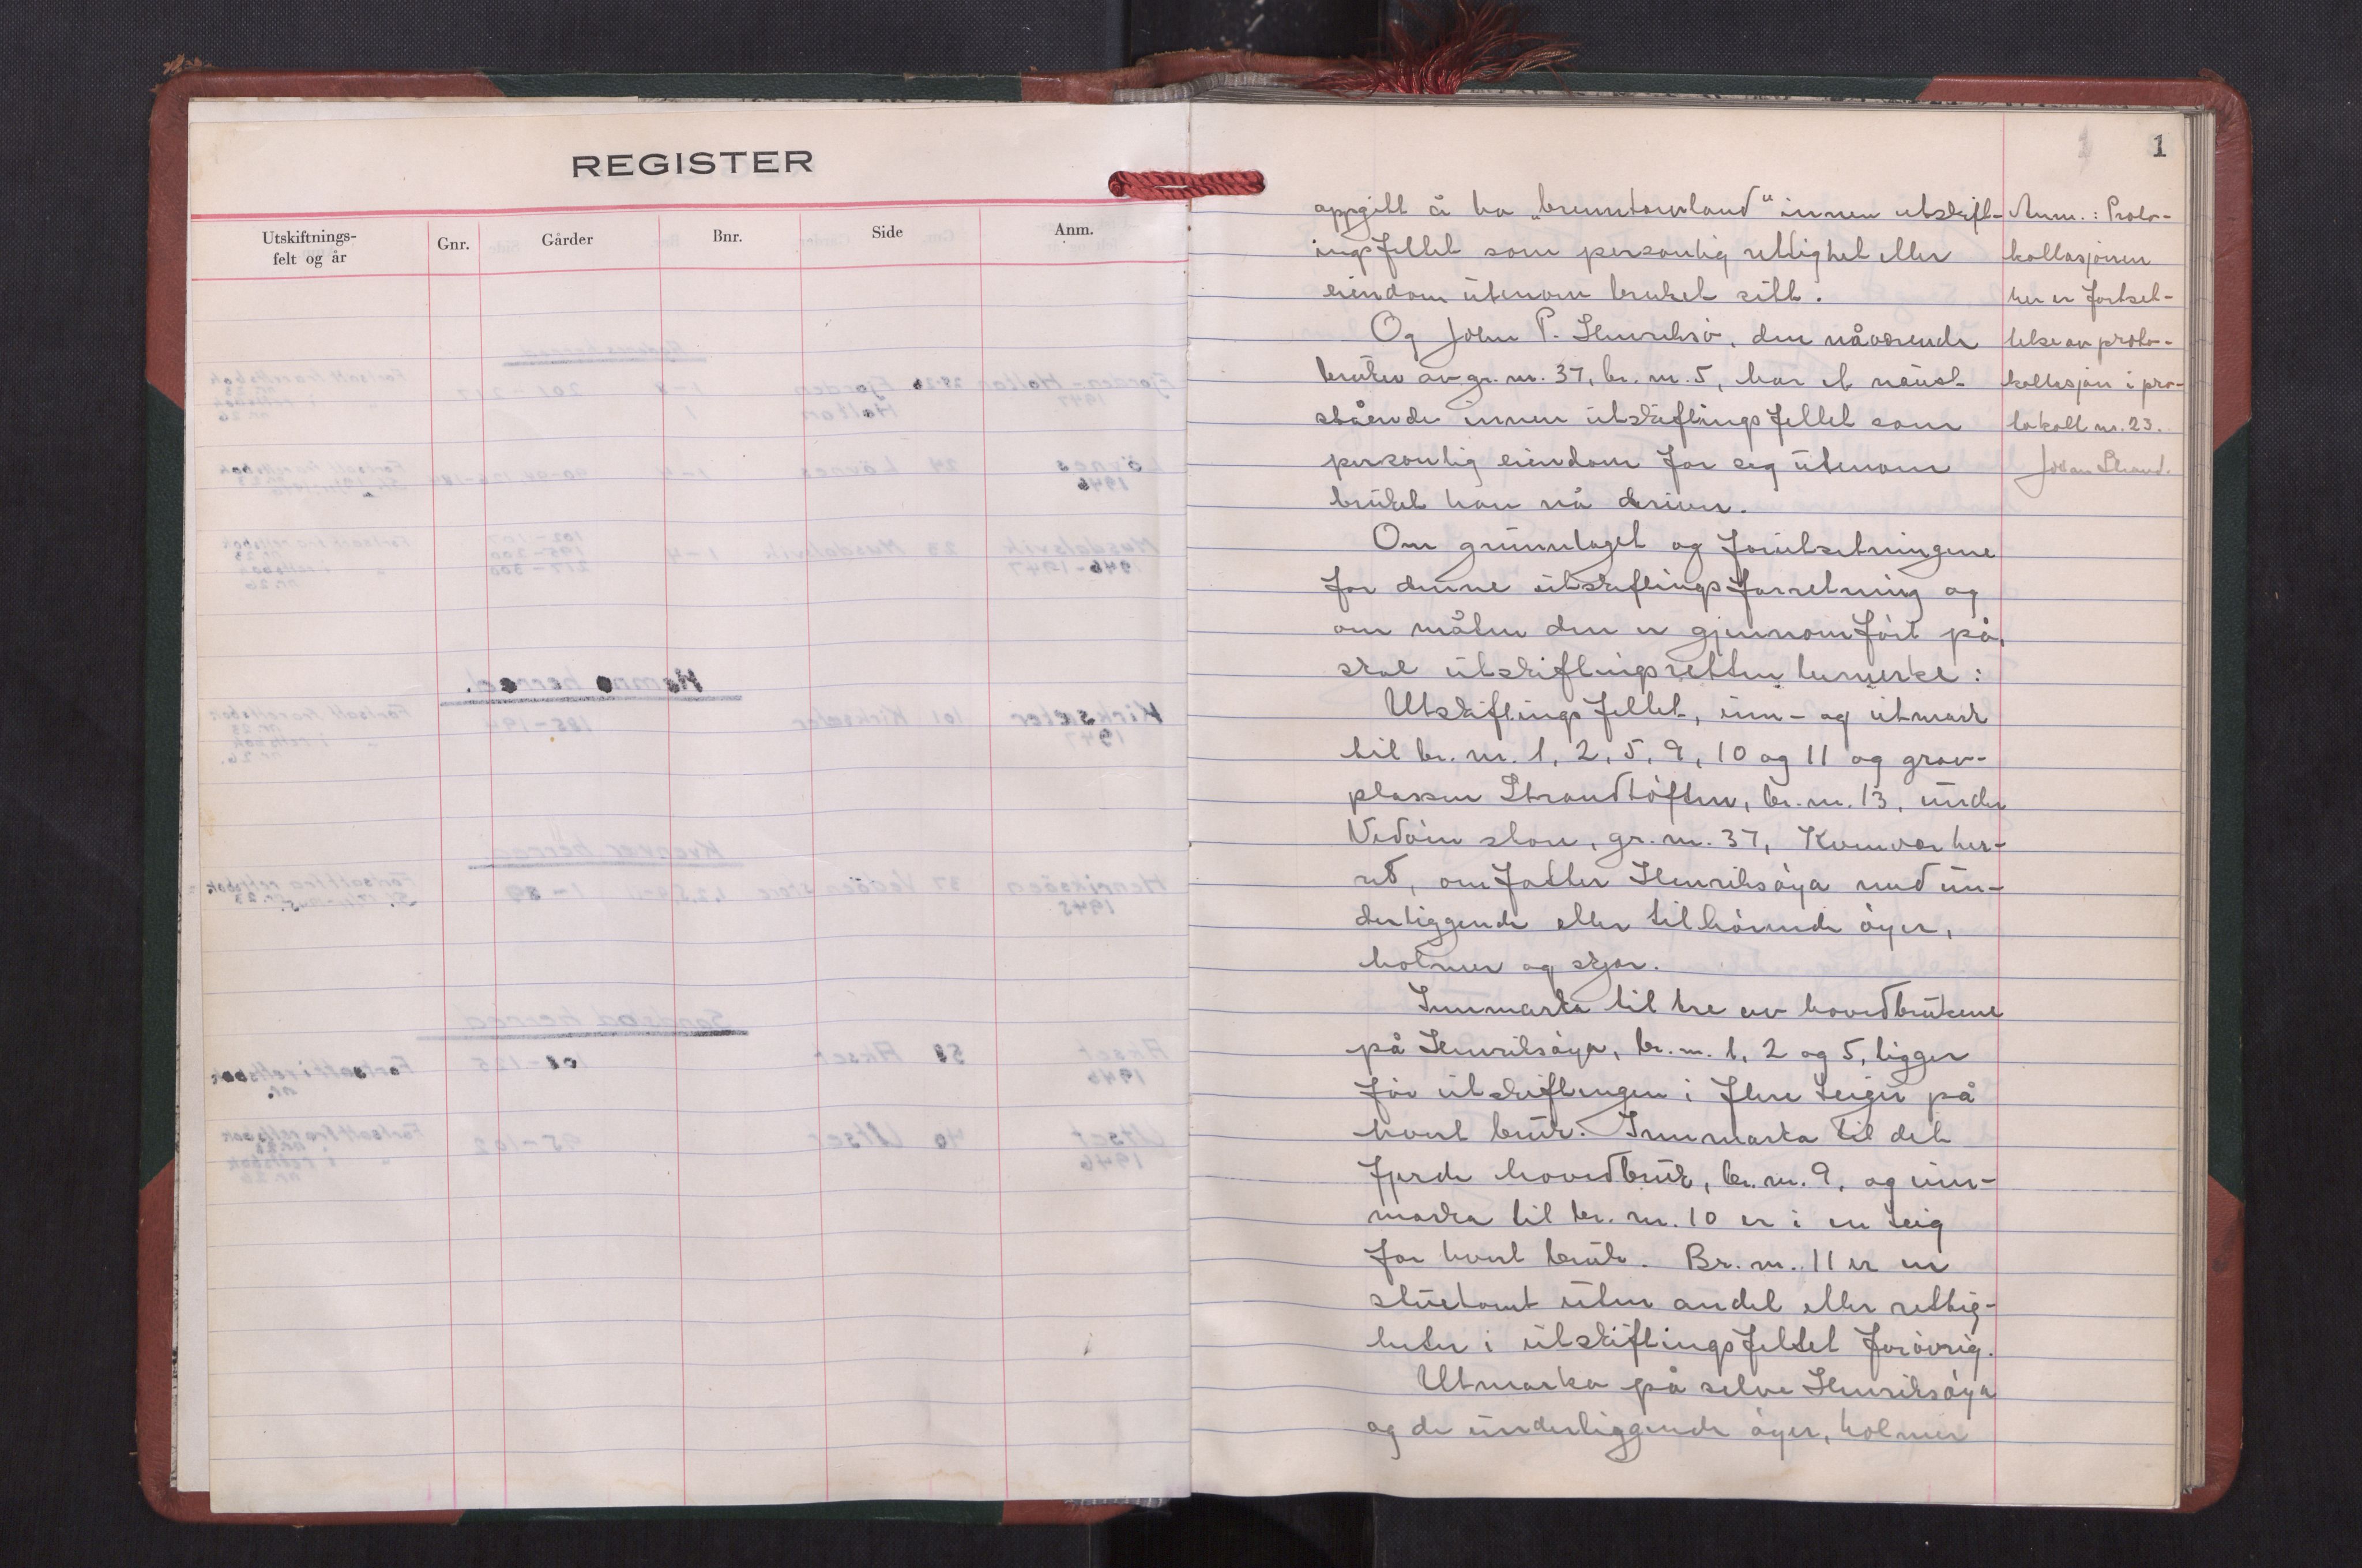 REGISTER
Utskiftnings-
felt og år
Gnr.
Gårder
Bnr.
Side
Anm.
1
oppgitt å ha „brenntorvland" innen utskift-
ingsfeltet som personlig rettighet eller
eiendom utenom bruket sitt.
Og John P. Henriksø, den nåværende
bruker av gr. nr. 37, br. nr. 5, har et naust
stående innen utskiftingsfeltet som
personlig eiendom for seg utenom
bruket han nå driver.
Om grunnlaget og forutsetningene
for denne utskiftingsforretning og
om måten den er gjennomført på,
skal utskiftingsretten bemerke:
Utskiftingsfeltet, inn- og utmark
til br. nr. 1, 2, 5, 9, 10 og 11 og grav-
plassen Strandtøften, br. nr. 13, under
Vedøin store, gr. nr. 37, Kvenvær her-
red, omfatter Henriksøya med un-
derliggende eller tilhørende øyer,
holmer og skjær.
Innmarka til tre av hovedbrukene
på Henriksøya, br. nr. 1, 2 og 5, ligger
før utskiftingen i flere teiger på
hvert bruk. Innmarka til det
fjerde hovedbruk, br. nr. 9, og inn-
marka til br. nr. 10 er i en teig
for hvert bruk. Br. nr. 11 er en
stuetomt uten andel eller rettig-
heter i utskiftingsfeltet forøvrig.
Utmarka på selve Henriksøya
og de underliggende øyer, holmer
Anm.: Proto-
kollasjonen
her er fortset-
telse av proto-
kollasjon i pro-
tokoll nr. 23.
Johan Strand.